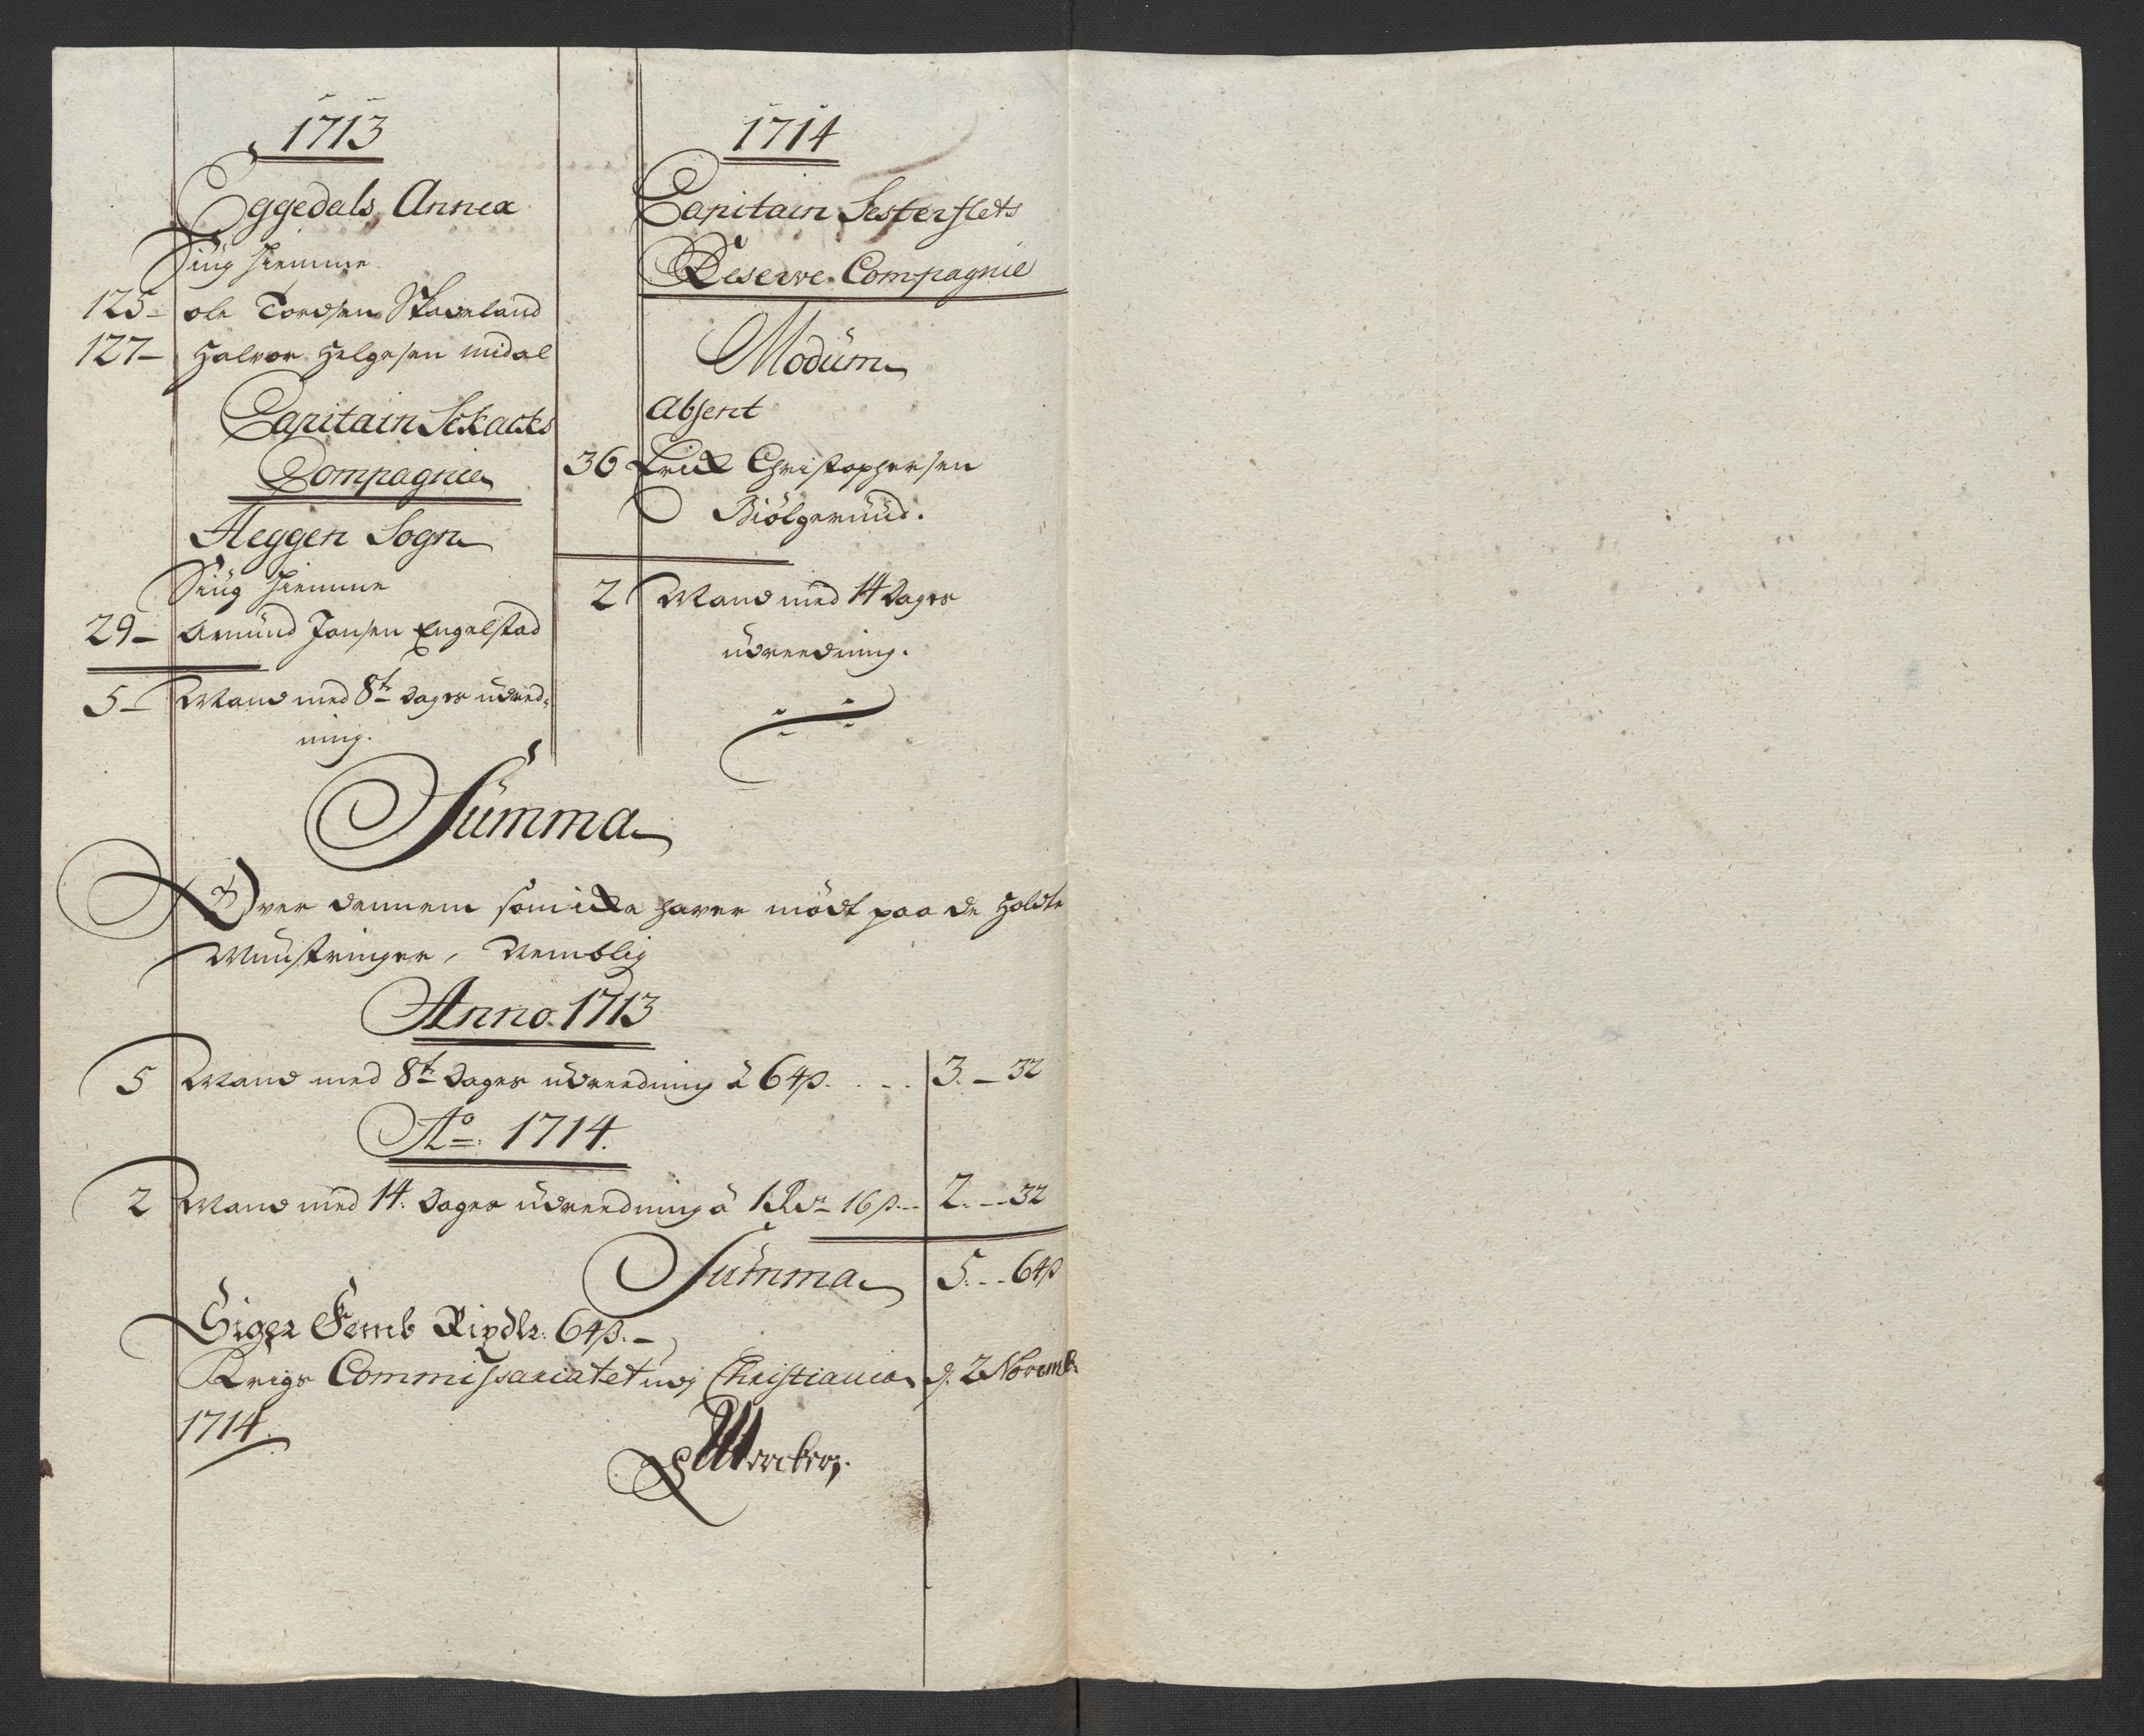 1713
Eggedals Annex
Siug hiemme
125- ole Tordsen Skadeland
127- Halvor Helgesen midal
Capitain Sckacks
Compagnie
Heggen Sogn
Siug hiemme
29- Amund Jonsen Engelstad
5- Mand med 8te dages udred-
ning.
1714
Capitain Sesterflets
Reserve Compagnie
Modum
Absent
36 Erick Christophersen
Biölgerud.
2 Mand med 14 Dages
udreedning.
Summa
Over dennem som icke haver mödt paa de holdte
Munstringer, Nemblig
Anno. 1713
5 Mand med 8te Dages udreedning à 64 ß. . . . 3. - 32
Ao. 1714.
2 Mand med 14. Dages udreedning à 1 Rdr 16 ß. . . 2. - 32
Summa 5. - 64 ß
Siger Femb Rixdlr. 64 ß. -
Krigs Commissariatet udj Christiania d. 2 Novemb:
1714.